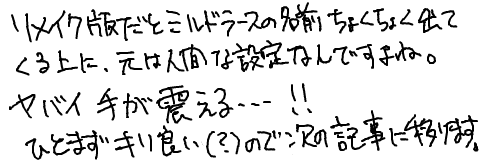 リメイク版だとミルドラースの名前ちょくちょく出て
くる上に、元は人間な設定なんですよね。
ヤバイ 手が震える…!!
ひとまずキリ良い(?)ので次の記事に移ります。